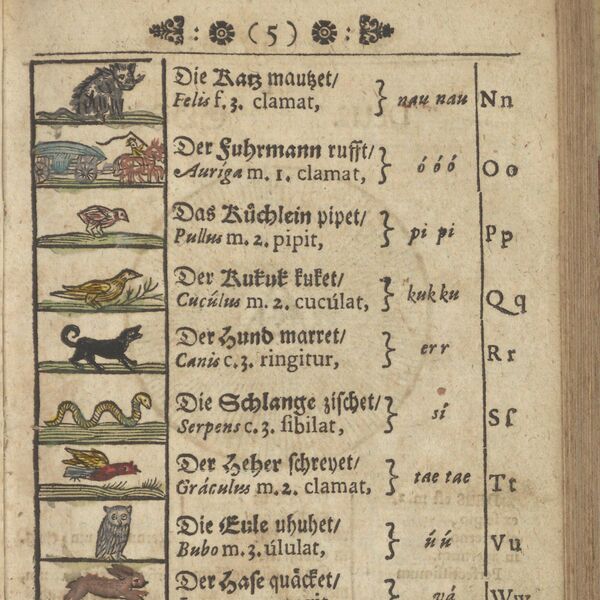 (5)
Die Katz mautzet/
Felis f. 3. clamat, } nau nau Nn
Der Fuhrmann rufft/
Auriga m. 1. clamat, } ó ó ó Oo
Das Kůchlein pipet/
Pullus m. 2. pipit, } pi pi Pp
Der Kukuk kuket/
Cucúlus m. 2. cucúlat, } kuk ku Qq
Der Hund marret/
Canis c. 3. ringitur, } err Rr
Die Schlange zischet/
Serpens c. 3. sibilat, } sí Sſ
Der Heher schreyet/
Gráculus m. 2. clamat, } tae tae Tt
Die Eule uhuhet/
Bubo m. 3. úlulat, } úú Vu
Der Hase quäcket/
vá Ww